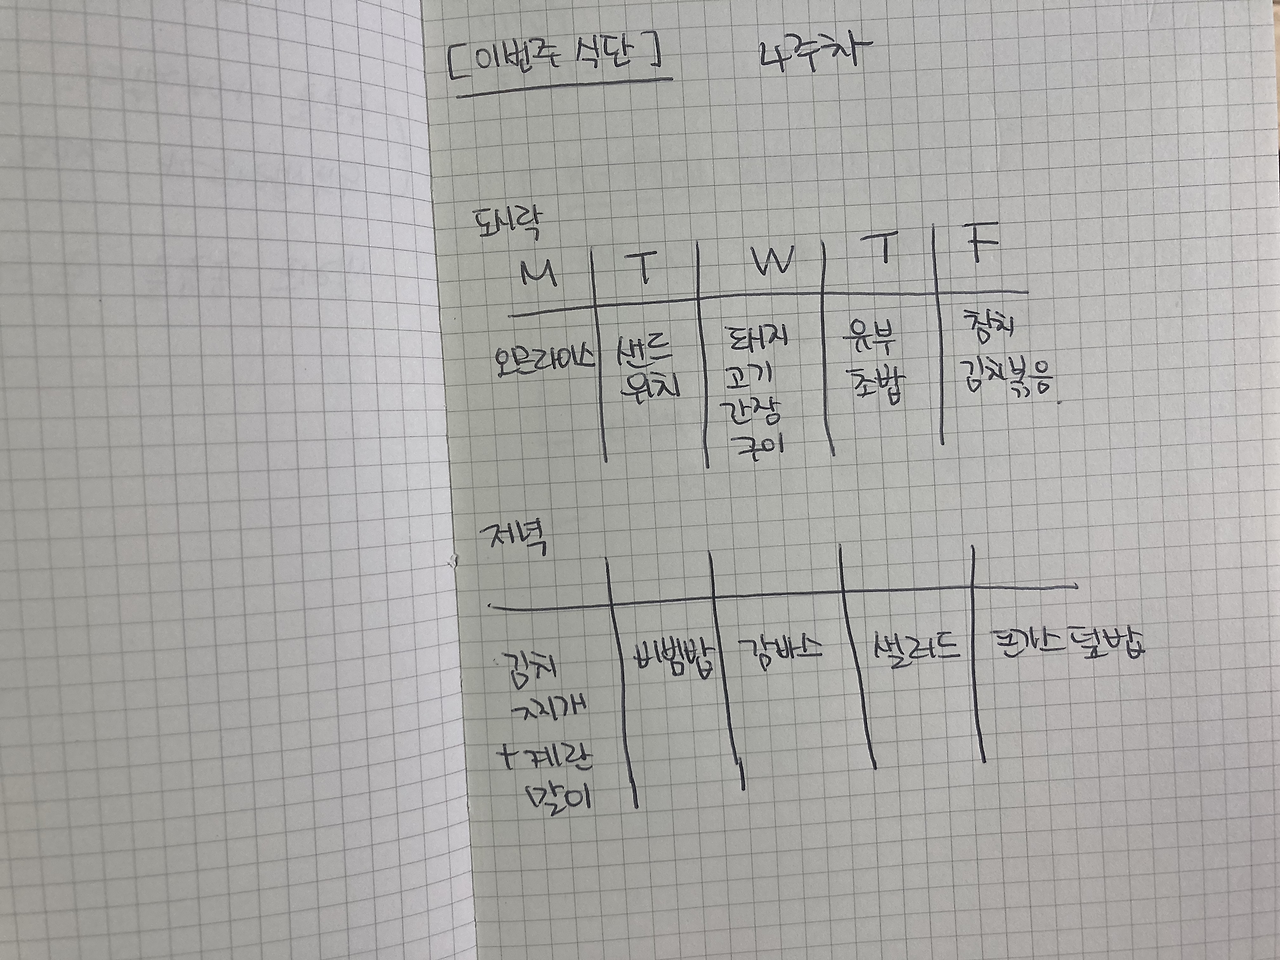 [이번주 식단] 4주차
도시락
M T W T F
오므라이스 샌드 돼지 유부 참치
위치 고기 초밥 김치볶음
간장
구이
저녁
김치 비빔밥 감바스 샐러드 돈가스 덮밥
찌개
+ 계란
말이